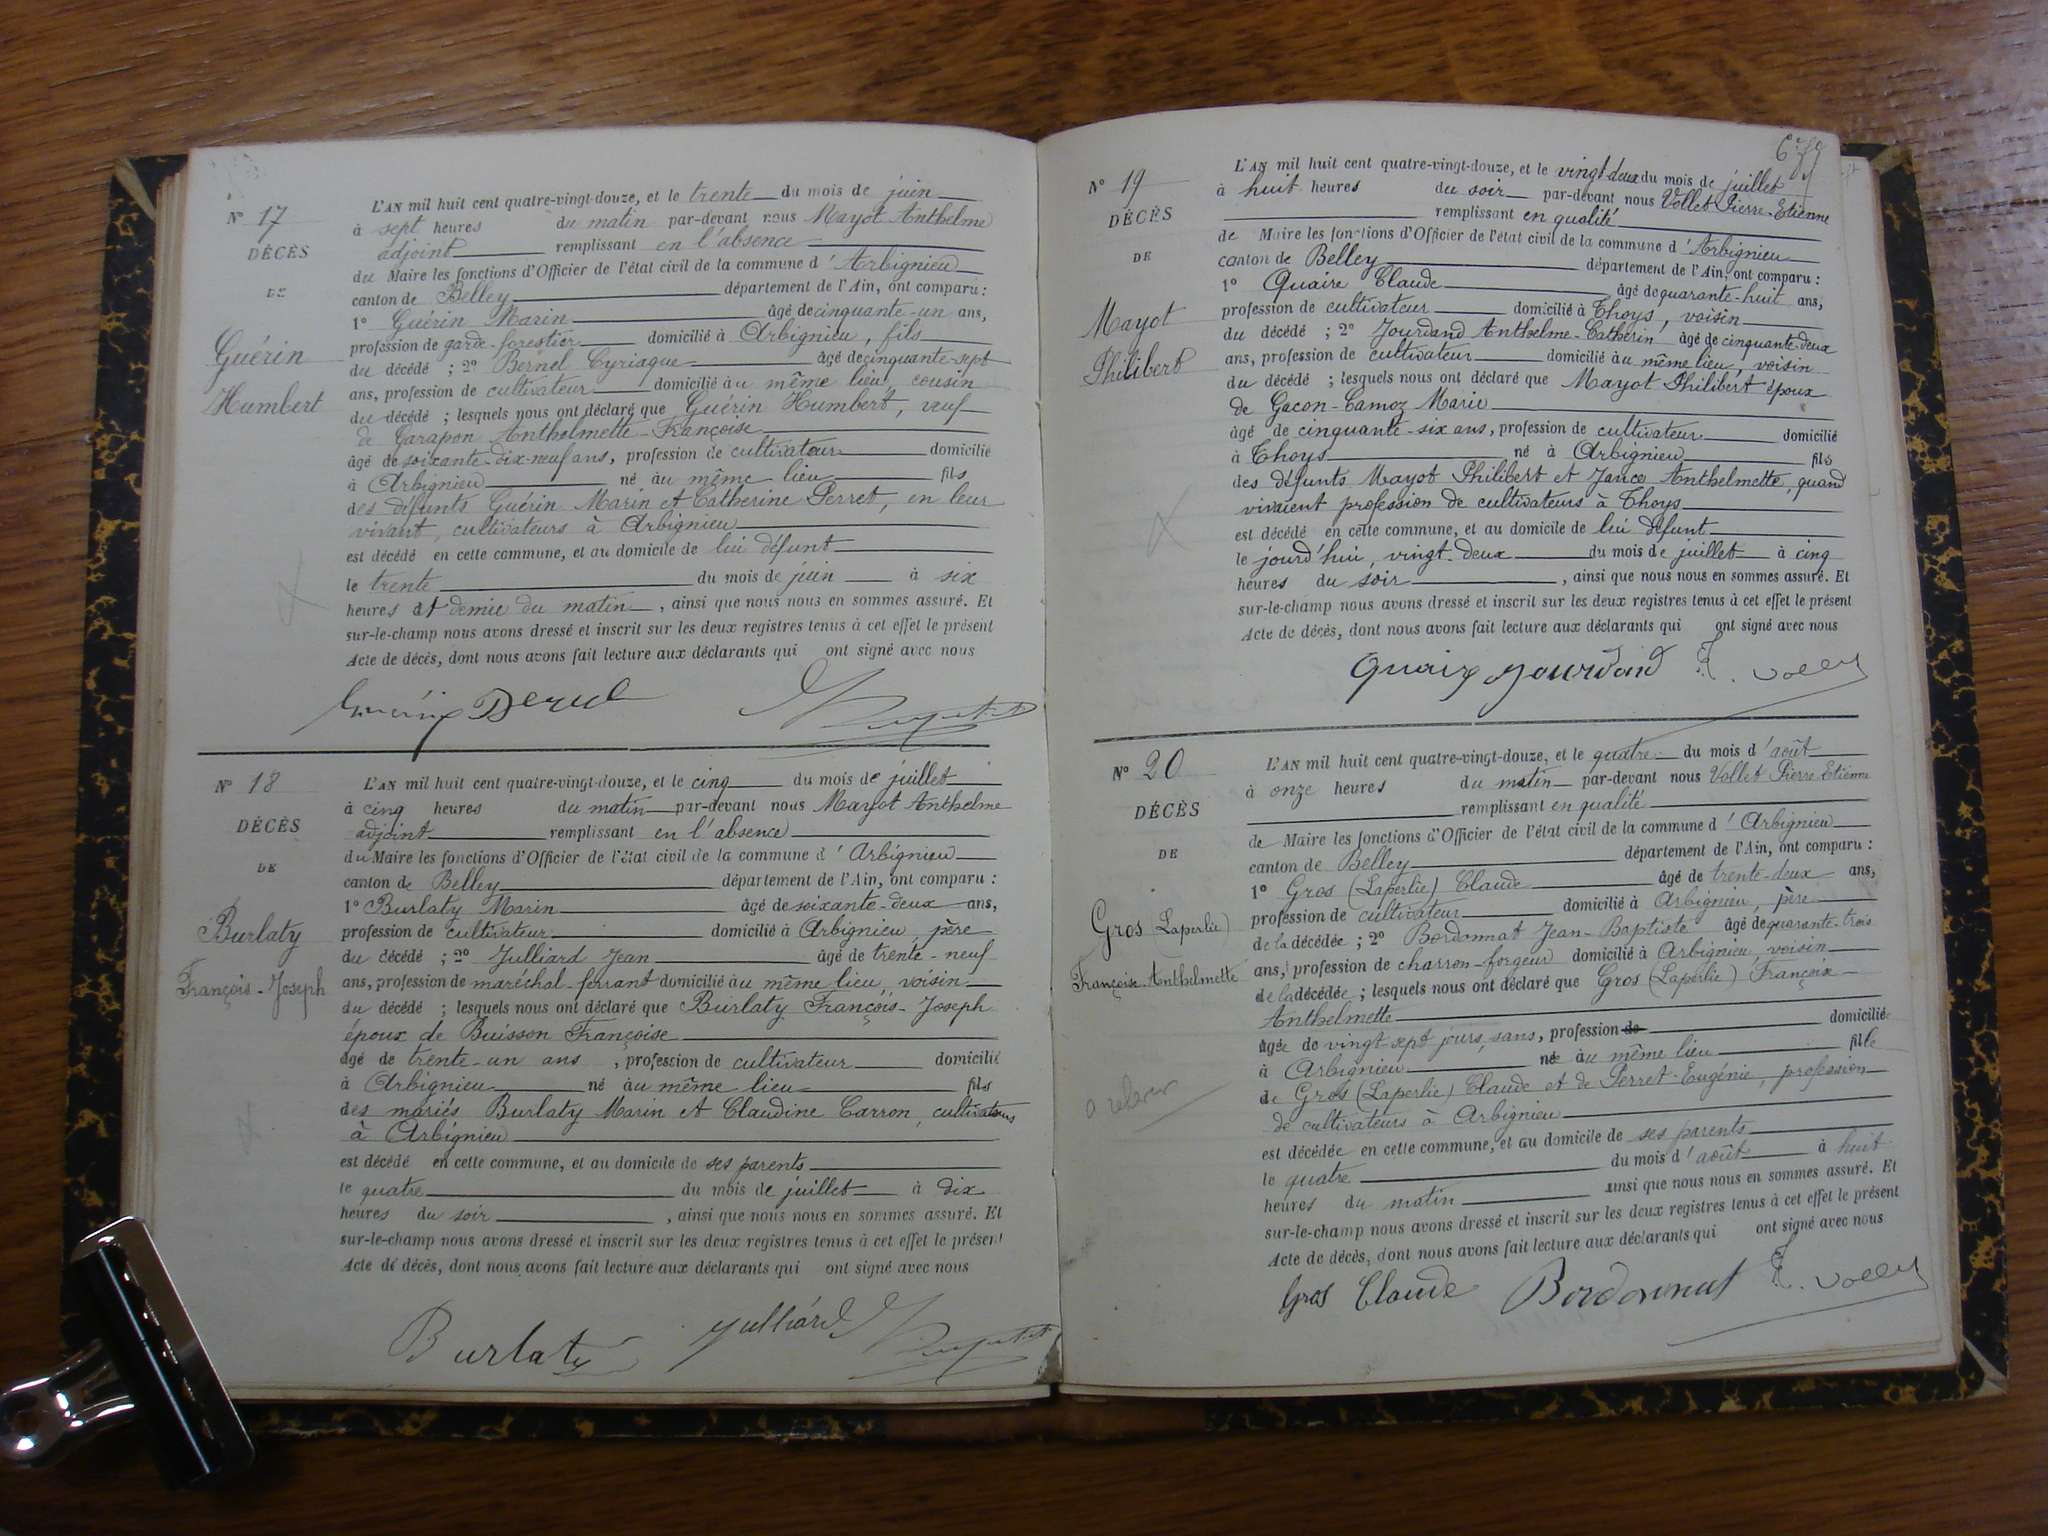 L'AN mil huit cent quatre-vingt-douze, et le trente du mois de juin
N° 17
à sept heures du matin par-devant nous Mayot Anthelme
adjoint remplissant en l'absence
DÉCÈS
du Maire les fonctions d'Officier de l'état civil de la commune d'Arbignieu
DE
canton de Belley département de l'Ain, ont comparu :
1° Guérin Marin âgé de cinquante-un ans,
profession de garde-forestier domicilié à Arbignieu, fils
Guérin
du décédé ; 2° Bernel Cyriaque âgé de cinquante-sept
ans, profession de cultivateur domicilié au même lieu, cousin
Humbert
du décédé ; lesquels nous ont déclaré que Guérin Humbert, veuf
de Carapon Anthelmette-Françoise
âgé de soixante-dix-neuf ans, profession de cultivateur domicilié
à Arbignieu né au même lieu fils
des défunts Guérin Marin et Catherine Perret, en leur
vivant, cultivateurs à Arbignieu
est décédé en cette commune, et au domicile de lui défunt
le trente du mois de juin à six
heures et demie du matin, ainsi que nous nous en sommes assuré. Et
sur-le-champ nous avons dressé et inscrit sur les deux registres tenus à cet effet le présent
Acte de décès, dont nous avons fait lecture aux déclarants qui ont signé avec nous
N° 18
L'AN mil huit cent quatre-vingt-douze, et le cinq du mois de juillet
à cinq heures du matin par-devant nous Mayot Anthelme
DÉCÈS
adjoint remplissant en l'absence
du Maire les fonctions d'Officier de l'état civil de la commune d'Arbignieu
DE
canton de Belley département de l'Ain, ont comparu :
1° Burlaty Marin âgé de soixante-deux ans,
Burlaty
profession de cultivateur domicilié à Arbignieu, père
du décédé ; 2° Julliard Jean âgé de trente-neuf
François-Joseph
ans, profession de maréchal-ferrant domicilié au même lieu, voisin
du décédé ; lesquels nous ont déclaré que Burlaty François-Joseph
époux de Buisson Françoise
âgé de trente-un ans, profession de cultivateur domicilié
à Arbignieu né au même lieu fils
des mariés Burlaty Marin et Claudine Carron, cultivateurs
à Arbignieu
est décédé en cette commune, et au domicile de ses parents
le quatre du mois de juillet à dix
heures du soir, ainsi que nous nous en sommes assuré. Et
sur-le-champ nous avons dressé et inscrit sur les deux registres tenus à cet effet le présent
Acte de décès, dont nous avons fait lecture aux déclarants qui ont signé avec nous
Burlaty Julliard
L'AN mil huit cent quatre-vingt-douze, et le vingt-deux du mois de juillet
N° 19
à huit heures du soir par-devant nous Vollet Pierre-Etienne
DÉCÈS
remplissant en qualité
de Maire les fonctions d'Officier de l'état civil de la commune d'Arbignieu
DE
canton de Belley département de l'Ain, ont comparu :
1° Quaire Claude âgé de quarante-huit ans,
profession de cultivateur domicilié à Thoys, voisin
Mayot
du décédé ; 2° Jourdand Anthelme-Catherin âgé de cinquante-deux
Philibert
ans, profession de cultivateur domicilié au même lieu, voisin
du décédé ; lesquels nous ont déclaré que Mayot Philibert époux
de Gacon-Camoz Marie
âgé de cinquante-six ans, profession de cultivateur domicilié
à Thoys né à Arbignieu fils
des défunts Mayot Philibert et Janco Anthelmette, quand
vivaient profession de cultivateurs à Thoys
est décédé en cette commune, et au domicile de lui défunt
le jourd'hui, vingt-deux du mois de juillet à cinq
heures du soir, ainsi que nous nous en sommes assuré. Et
sur-le-champ nous avons dressé et inscrit sur les deux registres tenus à cet effet le présent
Acte de décès, dont nous avons fait lecture aux déclarants qui ont signé avec nous
Jourdand
N° 20
L'AN mil huit cent quatre-vingt-douze, et le quatre du mois d'août
à onze heures du matin par-devant nous Vollet Pierre-Etienne
DÉCÈS
remplissant en qualité
de Maire les fonctions d'Officier de l'état civil de la commune d'Arbignieu
DE
canton de Belley département de l'Ain, ont comparu :
1° Gros (Laperlie) Claude âgé de trente-deux ans,
Gros (Laperlie)
profession de cultivateur domicilié à Arbignieu, père
de la décédée ; 2° Bordonnat Jean-Baptiste âgé de quarante-trois
Françoise-Anthelmette
ans, profession de charron-forgeur domicilié à Arbignieu, voisin
de la décédée ; lesquels nous ont déclaré que Gros (Laperlie) Françoise
Anthelmette
âgée de vingt sept jours, sans, profession de domicilié
à Arbignieu née au même lieu fille
a relever
de Gros (Laperlie) Claude et de Perret Eugénie, profession
de cultivateurs à Arbignieu
est décédée en cette commune, et au domicile de ses parents
le quatre du mois d'août à huit
heures du matin ainsi que nous nous en sommes assuré. Et
sur-le-champ nous avons dressé et inscrit sur les deux registres tenus à cet effet le présent
Acte de décès, dont nous avons fait lecture aux déclarants qui ont signé avec nous
Gros Claude Bordonnat